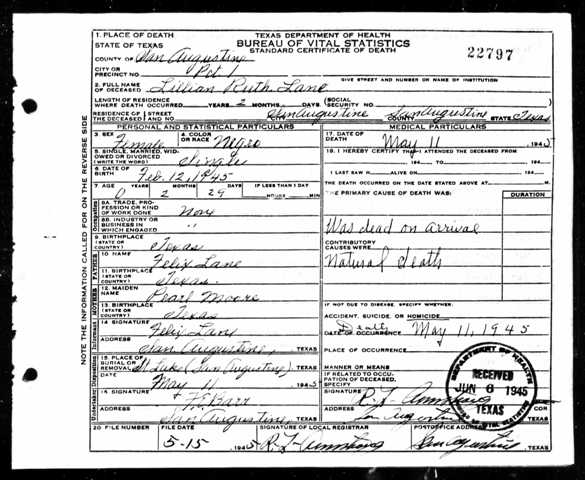 1. PLACE OF DEATH
STATE OF TEXAS
TEXAS DEPARTMENT OF HEALTH
BUREAU OF VITAL STATISTICS
STANDARD CERTIFICATE OF DEATH
22797
COUNTY OF San Augustine
CITY OR PRECINCT NO. Pct 1
GIVE STREET AND NUMBER OR NAME OF INSTITUTION
2. FULL NAME OF DECEASED Lillian Ruth Lane
LENGTH OF RESIDENCE WHERE DEATH OCCURRED YEARS 2 MONTHS DAYS SOCIAL SECURITY NO.
RESIDENCE OF THE DECEASED STREET AND NO. San Augustine COUNTY San Augustine STATE Texas
PERSONAL AND STATISTICAL PARTICULARS
MEDICAL PARTICULARS
3. SEX Female 4. COLOR OR RACE Negro
17. DATE OF DEATH May 11 1945
5. SINGLE, MARRIED, WIDOWED OR DIVORCED (WRITE THE WORD) Single
18. I HEREBY CERTIFY THAT I ATTENDED THE DECEASED FROM
194 TO 194
6. DATE OF BIRTH Feb. 12, 1945
I LAST SAW H ALIVE ON 194
7. AGE YEARS MONTHS DAYS IF LESS THAN 1 DAY
0 2 29 HOURS MIN
THE DEATH OCCURRED ON THE DATE STATED ABOVE AT M.
THE PRIMARY CAUSE OF DEATH WAS: DURATION
8A. TRADE, PROFESSION OR KIND OF WORK DONE
8B. INDUSTRY OR BUSINESS IN WHICH ENGAGED "
Was dead on arrival
9. BIRTHPLACE (STATE OR COUNTRY) Texas
CONTRIBUTORY CAUSES WERE
Natural death
10. NAME Felix Lane
11. BIRTHPLACE (STATE OR COUNTRY) Texas
12. MAIDEN NAME Pearl Moore
13. BIRTHPLACE (STATE OR COUNTRY) Texas
IF NOT DUE TO DISEASE, SPECIFY WHETHER:
ACCIDENT, SUICIDE, OR HOMICIDE
14. SIGNATURE Felix Lane
Death DATE OF OCCURRENCE May 11, 1945
ADDRESS San Augustine TEXAS
PLACE OF OCCURRENCE
15. PLACE OF BURIAL OR REMOVAL St Luke (San Augustine) TEXAS
MANNER OR MEANS
DATE May 11 1945
IF RELATED TO OCCUPATION OF DECEASED, SPECIFY
16. SIGNATURE
SIGNATURE R. J.
ADDRESS San Augustine, TEXAS
ADDRESS San Augustine
COR
TEXAS
DEPARTMENT OF HEALTH
RECEIVED
JUN 6 1945
TEXAS
BUREAU OF VITAL STATISTICS
20. FILE NUMBER FILE DATE SIGNATURE OF LOCAL REGISTRAR POSTOFFICE ADDRESS
5-15 1945 San Augustine, TEXAS
NOTE THE INFORMATION CALLED FOR ON THE REVERSE SIDE
Occupation
FATHER
MOTHER
Informant
Undertaker Disposition